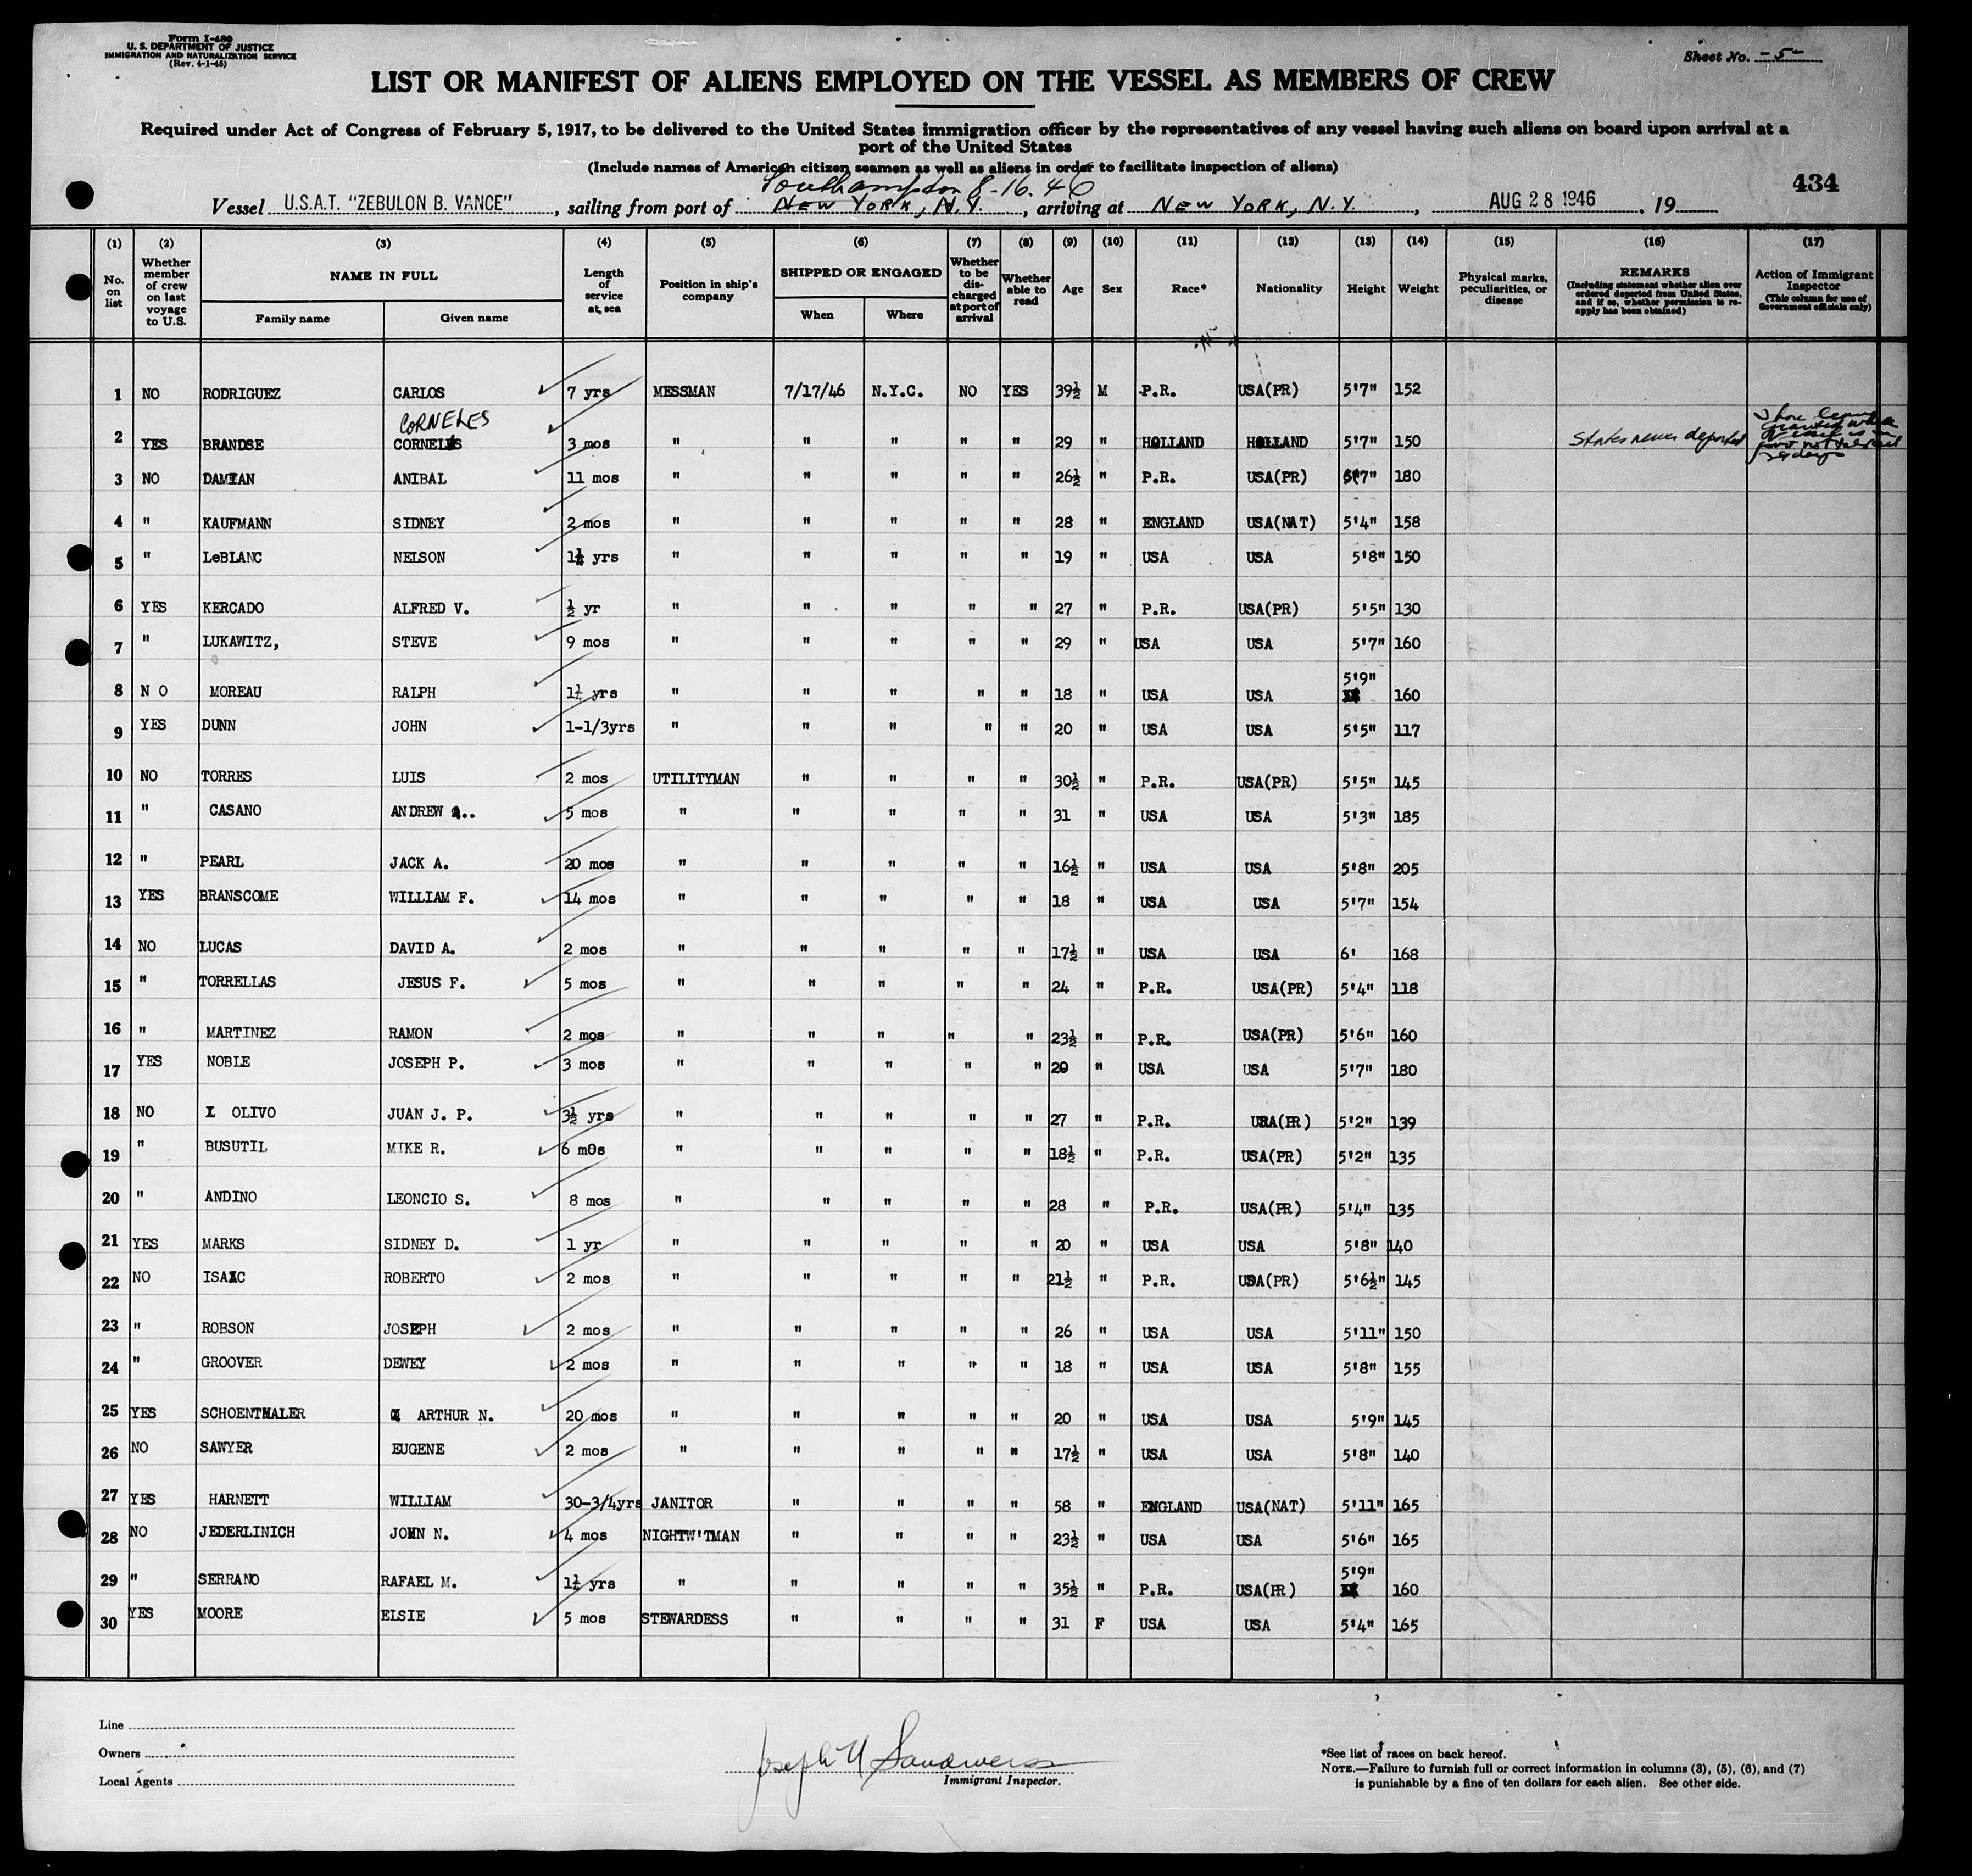 Form I-480
U. S. DEPARTMENT OF JUSTICE
IMMIGRATION AND NATURALIZATION SERVICE
(Rev. 4-1-45)
Sheet No. -5-
LIST OR MANIFEST OF ALIENS EMPLOYED ON THE VESSEL AS MEMBERS OF CREW
Required under Act of Congress of February 5, 1917, to be delivered to the United States immigration officer by the representatives of any vessel having such aliens on board upon arrival at a
port of the United States
(Include names of American citizen seamen as well as aliens in order to facilitate inspection of aliens)
434
Southampton 8-16.46
Vessel U.S.A.T. "ZEBULON B. VANCE", sailing from port of NEW YORK, N.Y., arriving at NEW YORK, N.Y., AUG 28 1946, 19
(1) (2) (3) (4) (5) (6) (7) (8) (9) (10) (11) (12) (13) (14) (15) (16) (17)
No. on list
Whether member of crew on last voyage to U.S.
NAME IN FULL
Family name Given name
Length of service at sea
Position in ship's company
SHIPPED OR ENGAGED
When Where
Whether to be discharged at port of arrival
Whether able to read
Age Sex Race* Nationality Height Weight
Physical marks, peculiarities, or disease
REMARKS
(Including statement whether alien ever ordered deported from United States, and if so, whether permission to reapply has been obtained)
Action of Immigrant Inspector
(This column for use of Government officials only)
1 NO RODRIGUEZ CARLOS 7 yrs MESSMAN 7/17/46 N.Y.C. NO YES 39½ M P.R. USA(PR) 5'7" 152
CORNELES
2 YES BRANDSE CORNELS 3 mos " " " " " 29 " HOLLAND HOLLAND 5'7" 150 States never deported
3 NO DAMIAN ANIBAL 11 mos " " " " " 26½ " P.R. USA(PR) 5'7" 180
4 " KAUFMANN SIDNEY 2 mos " " " " " 28 " ENGLAND USA(NAT) 5'4" 158
5 " LeBLANC NELSON yrs " " " " " 19 " USA USA 5'8" 150
6 YES KERCADO ALFRED V. ½ yr " " " " " 27 " P.R. USA(PR) 5'5" 130
7 " LUKAWITZ, STEVE 9 mos " " " " " 29 " USA USA 5'7" 160
8 N O MOREAU RALPH 1½ yrs " " " " " 18 " USA USA 5'9" 160
9 YES DUNN JOHN 1-1/3yrs " " " " " 20 " USA USA 5'5" 117
10 NO TORRES LUIS 2 mos UTILITYMAN " " " " 30½ " P.R. USA(PR) 5'5" 145
11 " CASANO ANDREW 5 mos " " " " " 31 " USA USA 5'3" 185
12 " PEARL JACK A. 20 mos " " " " " 16½ " USA USA 5'8" 205
13 YES BRANSCOME WILLIAM F. 14 mos " " " " " 18 " USA USA 5'7" 154
14 NO LUCAS DAVID A. 2 mos " " " " " 17½ " USA USA 6' 168
15 " TORRELLAS JESUS F. 5 mos " " " " " 24 " P.R. USA(PR) 5'4" 118
16 " MARTINEZ RAMON 2 mos " " " " " 23½ " P.R. USA(PR) 5'6" 160
17 YES NOBLE JOSEPH P. 3 mos " " " " " 20 " USA USA 5'7" 180
18 NO OLIVO JUAN J. P. 3½ yrs " " " " " 27 " P.R. USA(PR) 5'2" 139
19 " BUSUTIL MIKE R. 6 m0s " " " " " 18½ " P.R. USA(PR) 5'2" 135
20 " ANDINO LEONCIO S. 8 mos " " " " " 28 " P.R. USA(PR) 5'4" 135
21 YES MARKS SIDNEY D. 1 yr " " " " " 20 " USA USA 5'8" 140
22 NO ISAAC ROBERTO 2 mos " " " " " 21½ " P.R. USA(PR) 5'6½" 145
23 " ROBSON JOSEPH 2 mos " " " " " 26 " USA USA 5'11" 150
24 " GROOVER DEWEY 2 mos " " " " " 18 " USA USA 5'8" 155
25 YES SCHOENTHALER ARTHUR N. 20 mos " " " " " 20 " USA USA 5'9" 145
26 NO SAWYER EUGENE 2 mos " " " " " 17½ " USA USA 5'8" 140
27 YES HARNETT WILLIAM 30-3/4yrs JANITOR " " " " 58 " ENGLAND USA(NAT) 5'11" 165
28 NO JEDERLINICH JOHN N. 4 mos NIGHTW'TMAN " " " " 23½ " USA USA 5'6" 165
29 " SERRANO RAFAEL M. 1½ yrs " " " " " 35½ " P.R. USA(PR) 5'9" 160
30 YES MOORE ELSIE 5 mos STEWARDESS " " " " 31 F USA USA 5'4" 165
Line
Owners
Local Agents
Joseph
Immigrant Inspector.
*See list of races on back hereof.
NOTE.—Failure to furnish full or correct information in columns (3), (5), (6), and (7)
is punishable by a fine of ten dollars for each alien. See other side.